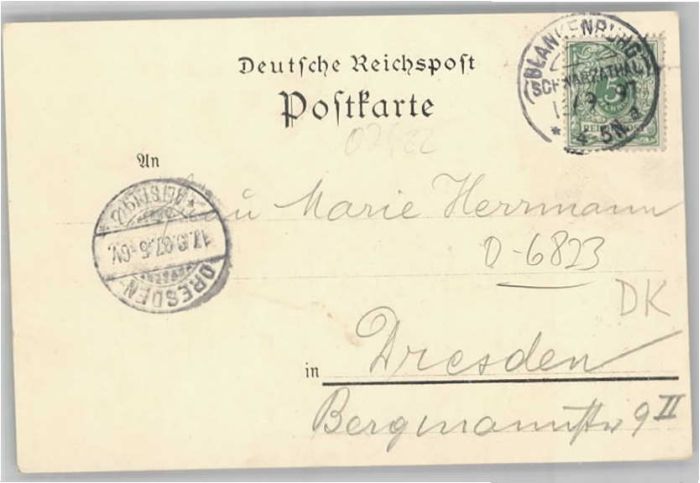 Deutsche Reichspost
Postkarte
BLANKENBURG
SCHWARZATHAL
9 97
4-5N. a
5
REICHSPOST
07422
An
Frau Marie Herrmann
D-6823
DK
17.9.97.5-6V.
DRESDEN-
in Dresden
Bergmannstr 9 II